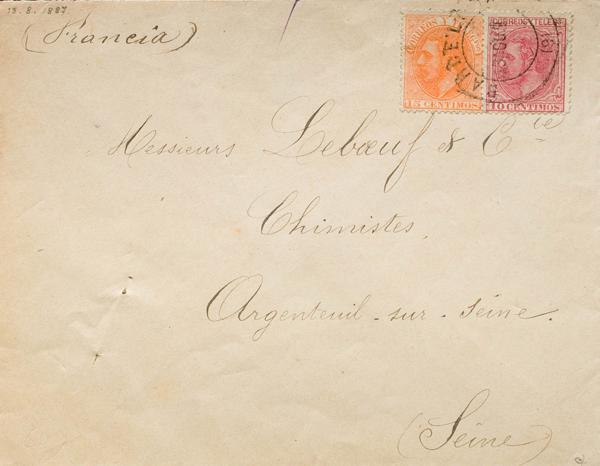 13.8.1887
(Francia)
CORREOS Y
CORREOS Y TELEG
BARCEL
15 CENTIMOS
10 CENTIMOS
Messieurs Lebœuf & Cie
Chimistes,
Argenteuil-sur-Seine.
(Seine)